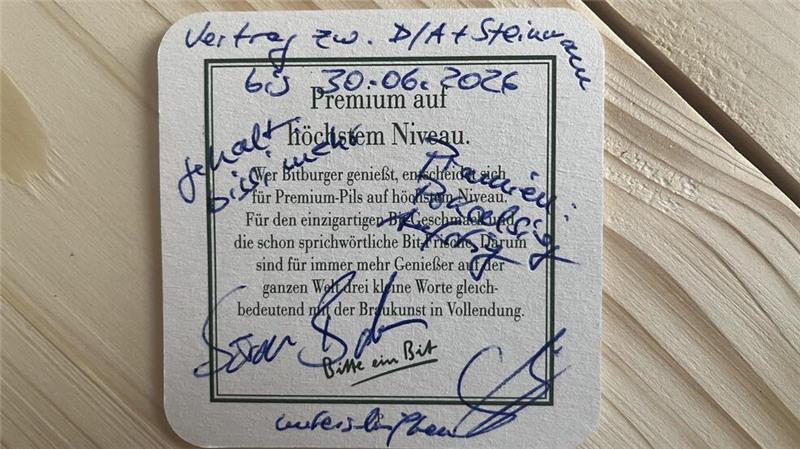 Vertrag zw. D/A + Steinmann
bis 30.06.2026
Premium auf
höchstem Niveau.
Gehalt:
bissi mehr
Prämien:
Derbysieg
Aufstieg
Wer Bitburger genießt, entscheidet sich
für Premium-Pils auf höchstem Niveau.
Für den einzigartigen Bit-Geschmack und
die schon sprichwörtliche Bit-Frische. Darum
sind für immer mehr Genießer auf der
ganzen Welt drei kleine Worte gleich-
bedeutend mit der Braukunst in Vollendung.
Bitte ein Bit
unterschrieben